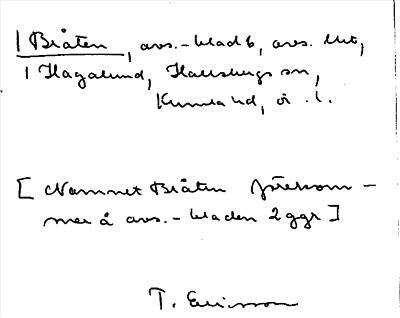 | Bråten, avs.-blad 6, avs. till,
| Hagalund, Hallsbergs sn,
Kumla hd, ö. l.
[ Namnet Bråten förekom-
mer å avs.-bladen 2 ggr ]
T. Ericsson